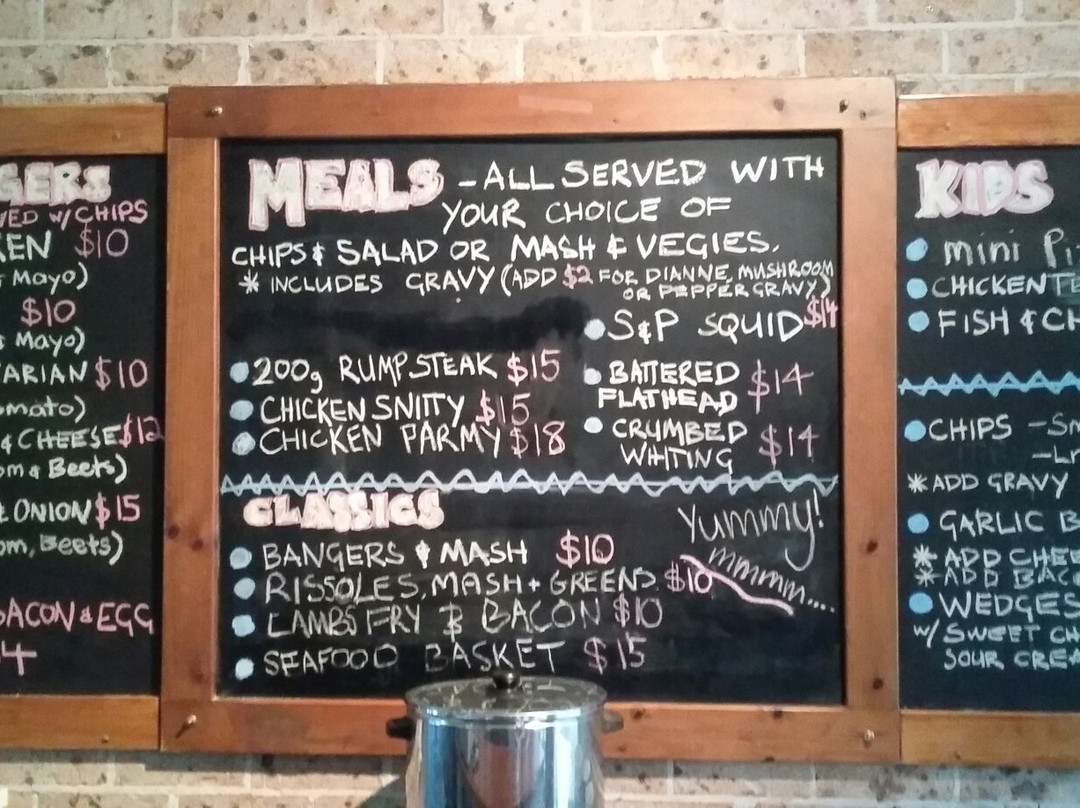 GERS
VED w/ CHIPS
KEN $10
Mayo)
$10
Mayo)
ARIAN $10
mato)
& CHEESE $12
om & Beets)
ONION $15
om, Beets)
BACON & EGG
4
MEALS - ALL SERVED WITH
YOUR CHOICE OF
CHIPS & SALAD OR MASH & VEGIES.
* INCLUDES GRAVY (ADD $2 FOR DIANNE, MUSHROOM
OR PEPPER GRAVY)
• S&P SQUID $14
• 200g RUMP STEAK $15
• CHICKEN SNITTY $15
• CHICKEN PARMY $18
• BATTERED
FLATHEAD $14
• CRUMBED
WHITING $14
CLASSICS
• BANGERS & MASH $10
• RISSOLES, MASH + GREENS $10
• LAMBS FRY & BACON $10
• SEAFOOD BASKET $15
Yummy!
mmmm....
KIDS
• mini Pi
• CHICKEN TE
• FISH & CH
• CHIPS - Sm
- Lr
* ADD GRAVY
• GARLIC B
* ADD CHEE
* ADD BAC
• WEDGES
w/ SWEET CH
SOUR CREA